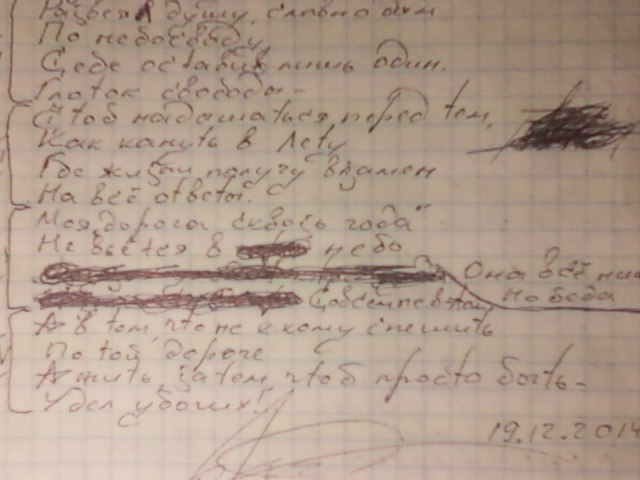 Развеял душу, словно дым
По небосводу,
Себе оставив лишь один.
Глоток свободы –
Чтоб надышаться перед тем,
Как кануть в Лету
Где жизни получу взамен
На всё ответы.
Моя дорога сквозь года
Не вьётся в небо
Она всё
Совсем не в том,
беда
А в том, что не к кому спешить
По той дороге
А жить затем, чтоб просто быть –
Удел убогих!
19.12.2014